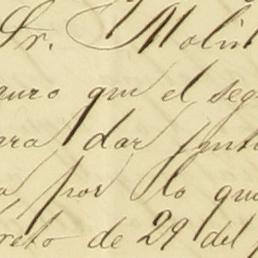 Sr. Molin
guro que el seg
ara dar
a por lo que
creto de 29 del p